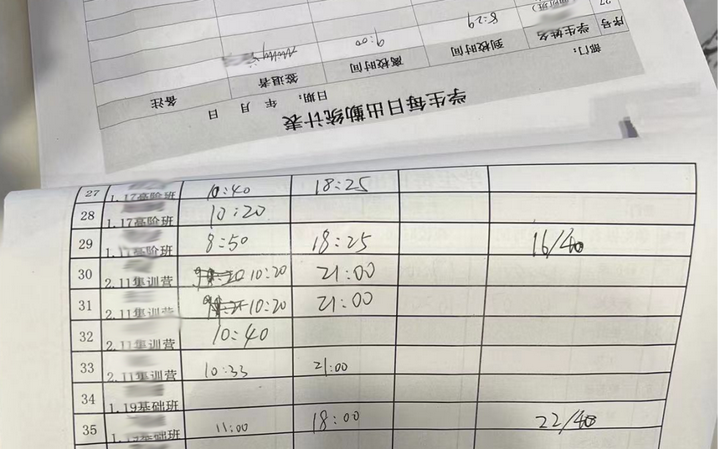 学生每日出勤统计表
部门: 日期: 年 月 日
序号 学生姓名 到校时间 离校时间 签退者 备注
27 8:29 9:00
27 1.17高阶班 10:40 18:25
28 1.17高阶班 10:20
29 高阶班 8:50 18:25 16/40
30 2.11集训营 10:20 21:00
31 2.11集训营 10:20 21:00
32 2.11集训营 10:40
33 2.11集训营 10:33 21:00
34 1.19基础班
35 11:00 18:00 22/40